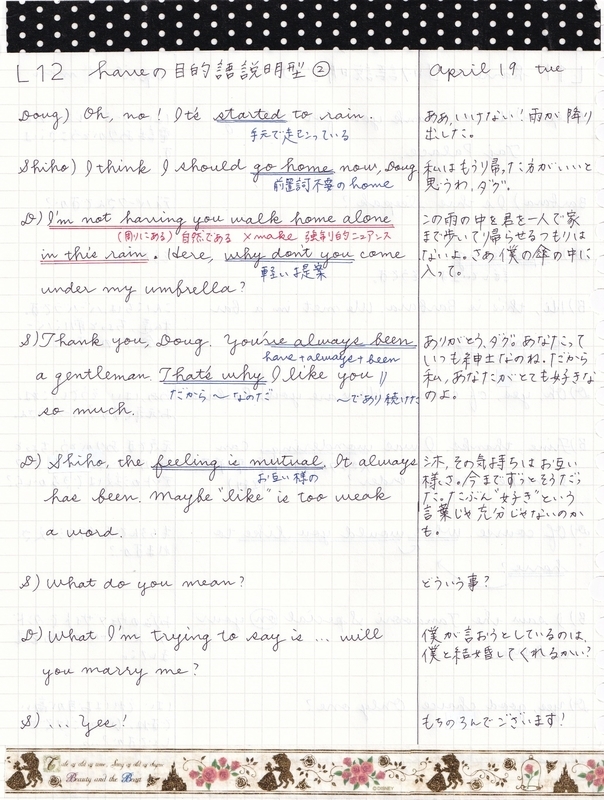 L12 haveの目的語説明型② April 19 tue
Doug) Oh, no! It's started to rain. ああ、いけない!雨が降り
手元で走もこっている 出した。
Shiho) I think I should go home now, Doug 私はもうり帰った方がいいと
前置詞不要のhome 思うわ、ダグ。
D) I'm not having you walk home alone この雨の中を君を一人で家
(周りにある)自然である ×make 強制的ニュアンス まで歩いてり帰らせるつもりは
in this rain. Here, why don't you come ないよ。さあ僕の傘の中に
軽い提案 入って。
under my umbrella?
S) Thank you, Doug. You've always been ありがとう、ダグ。あなたって
have+always+been いつも紳士なのね。だから
a gentleman. That's why I like you 私、あなたがとても好きな
だから〜なのだ 〜であり続けた のよ。
so much.
D) Shiho, the feeling is mutual. It always シホ、その気持ちはお互い
お互い様の 様さ。今までずっとそうだっ
has been. Maybe "like" is too weak た。たぶん"好き"という
a word. 言葉じゃ充分じゃないのか
も。
S) What do you mean? どういう事?
D) What I'm trying to say is ... will 僕が言おうとしているのは、
you marry me? 僕と結婚してくれるかい?
S) ... Yes! もちろんでございます!
Tale as old as time, Song as old as rhyme
Beauty and the Beast
©DISNEY